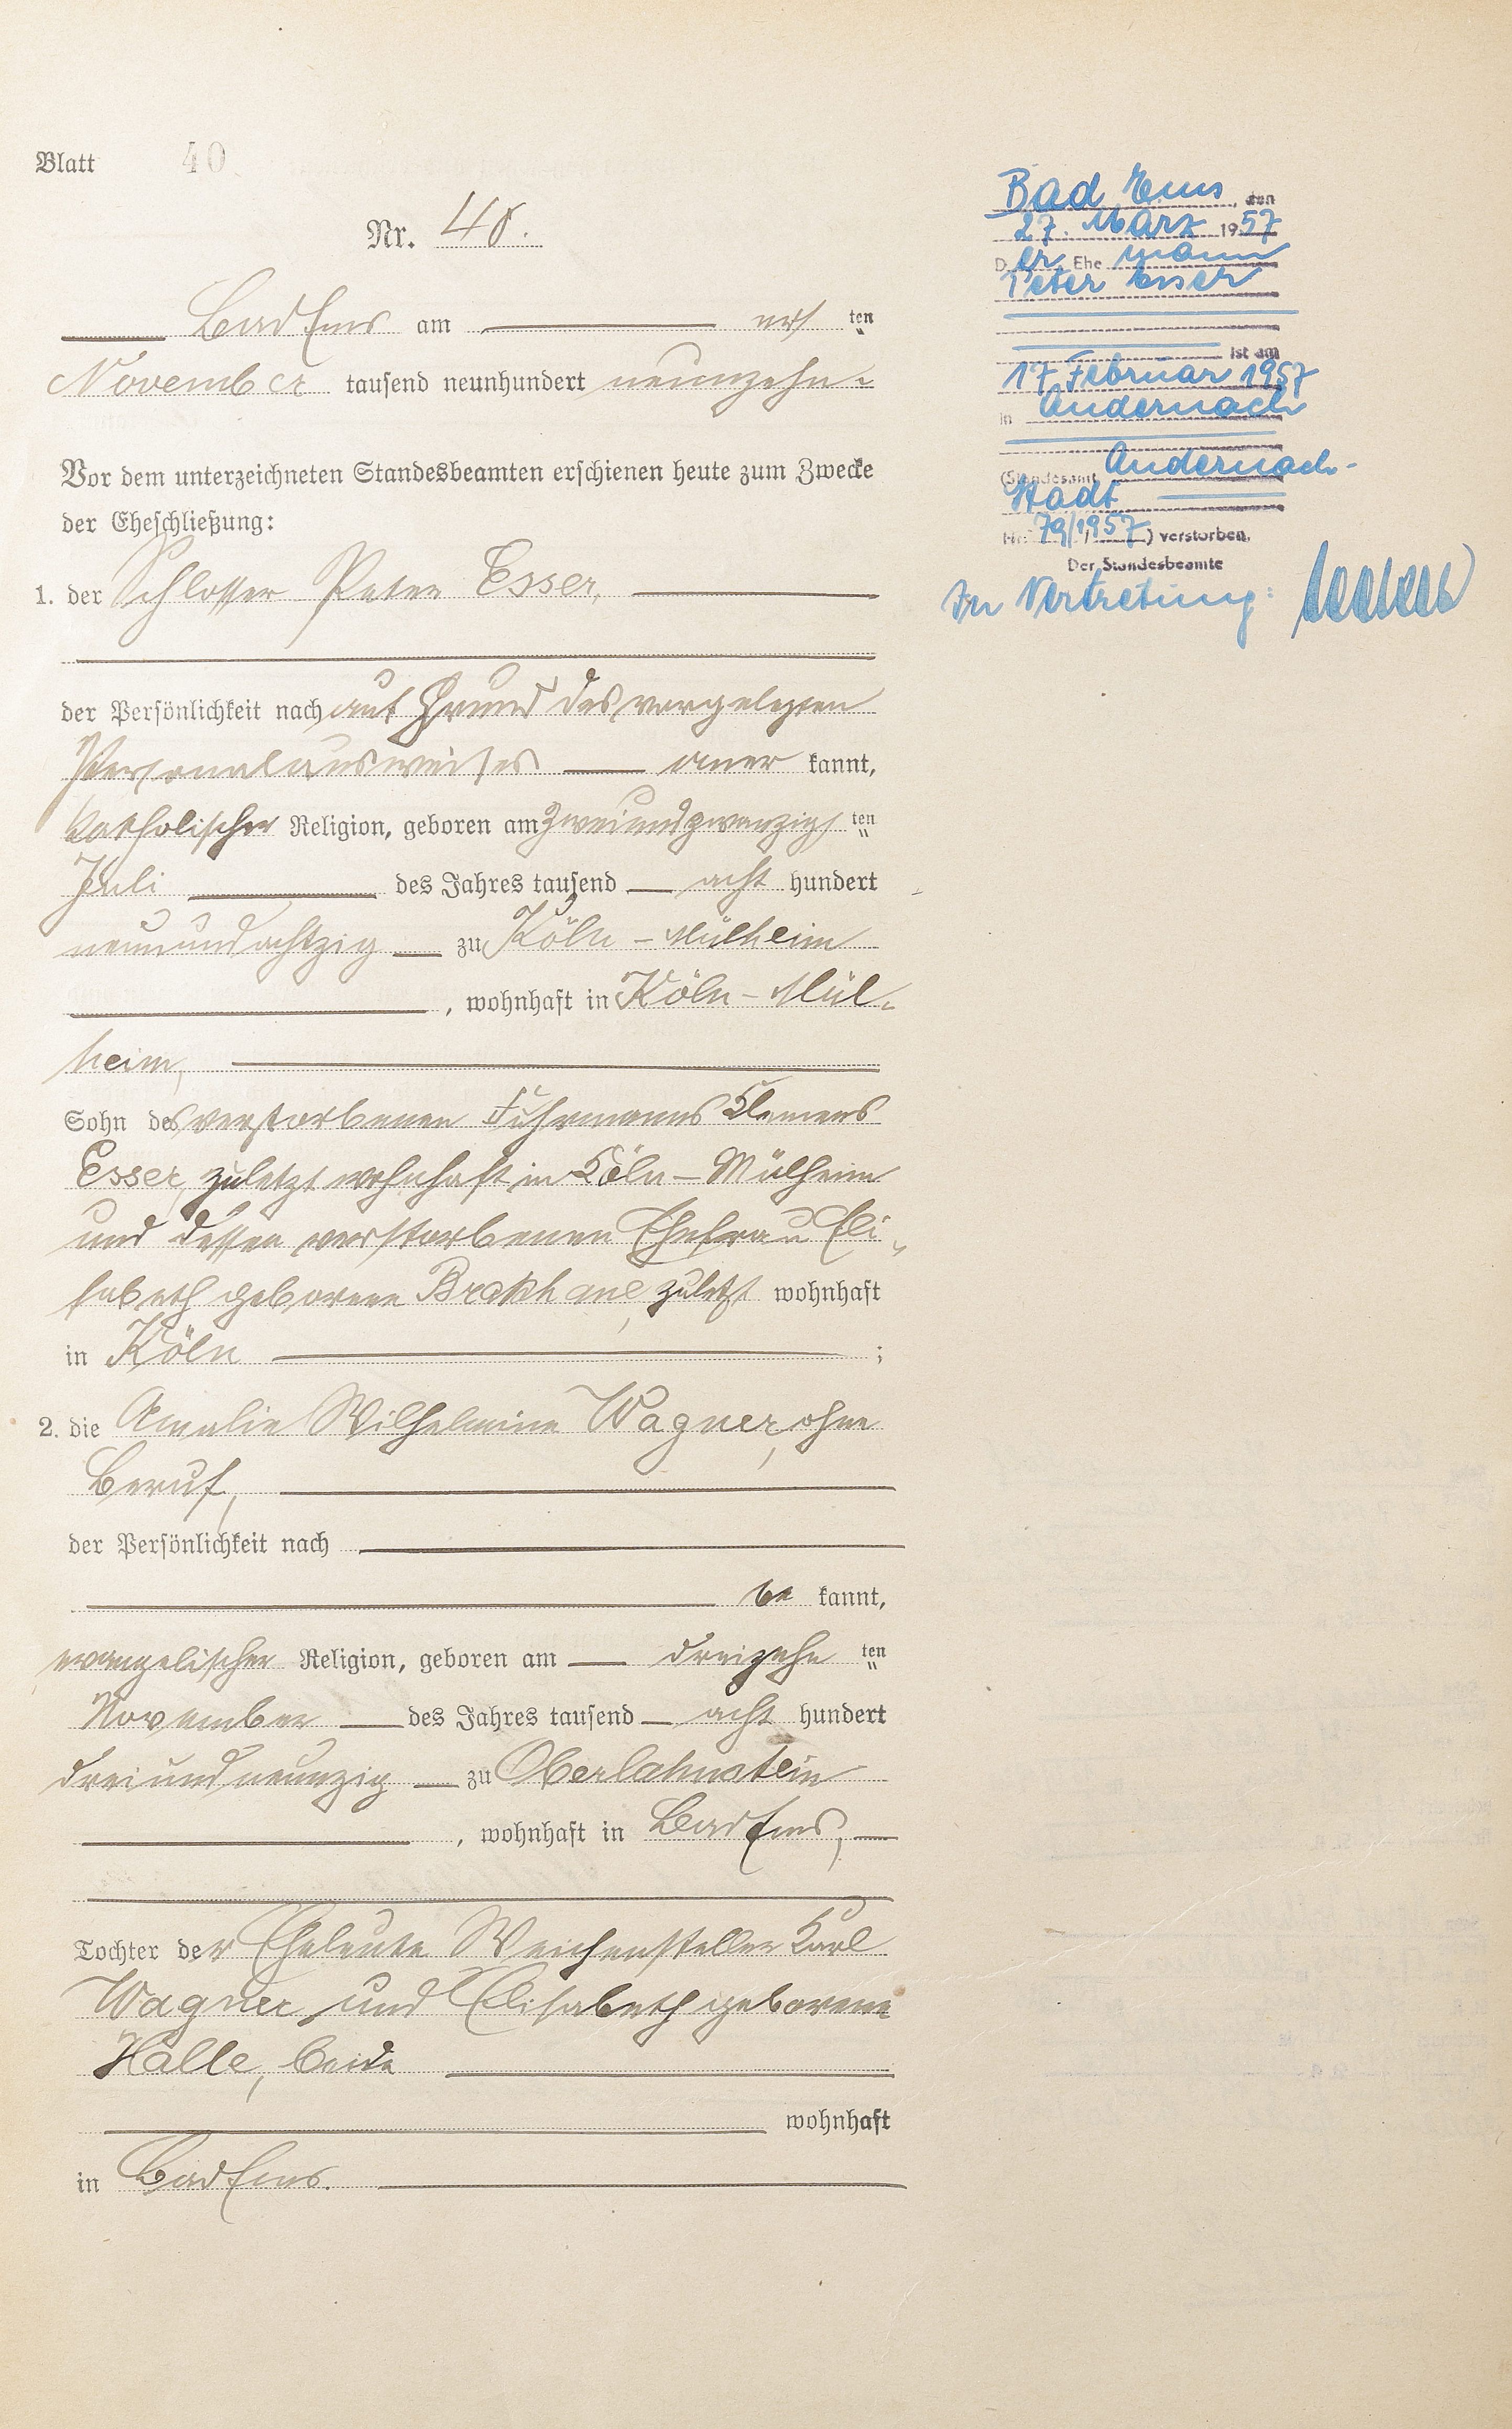 Blatt 40
Nr. 40.
Bad Ems am ersten
November tausend neunhundert neunzehn.
Vor dem unterzeichneten Standesbeamten erschienen heute zum Zwecke
der Eheschließung:
1. der Schlosser Peter Esser,
der Persönlichkeit nach auf Grund des vorgelegten
Personalausweises anerkannt,
katholischer Religion, geboren am zweiundzwanzigsten
Juli des Jahres tausend acht hundert
neunundachtzig zu Köln-Mülheim
, wohnhaft in Köln-Mül-
heim,
Sohn des verstorbenen Fuhrmanns Klemens
Esser, zuletzt wohnhaft in Köln-Mülheim
und dessen verstorbenen Ehefrau Eli-
sabeth geborene zuletzt wohnhaft
in Köln ;
2. die Amalie Wilhelmine Wagner, ohne
Beruf,
der Persönlichkeit nach
bekannt,
evangelischer Religion, geboren am dreizehnten
November des Jahres tausend acht hundert
dreiundneunzig zu Oberlahnstein
, wohnhaft in Bad Ems,
Tochter der Eheleute Weichensteller Karl
Wagner und Elisabeth geborene
Halle, beide
wohnhaft
in Bad Ems.
Bad Ems, den
27. März 1957
Der Ehemann
Peter Esser
ist am
17. Februar 1957
in Andernach
(Standesamt Andernach-
Stadt
Nr. 79/1957) verstorben.
Der Standesbeamte
In Vertretung: